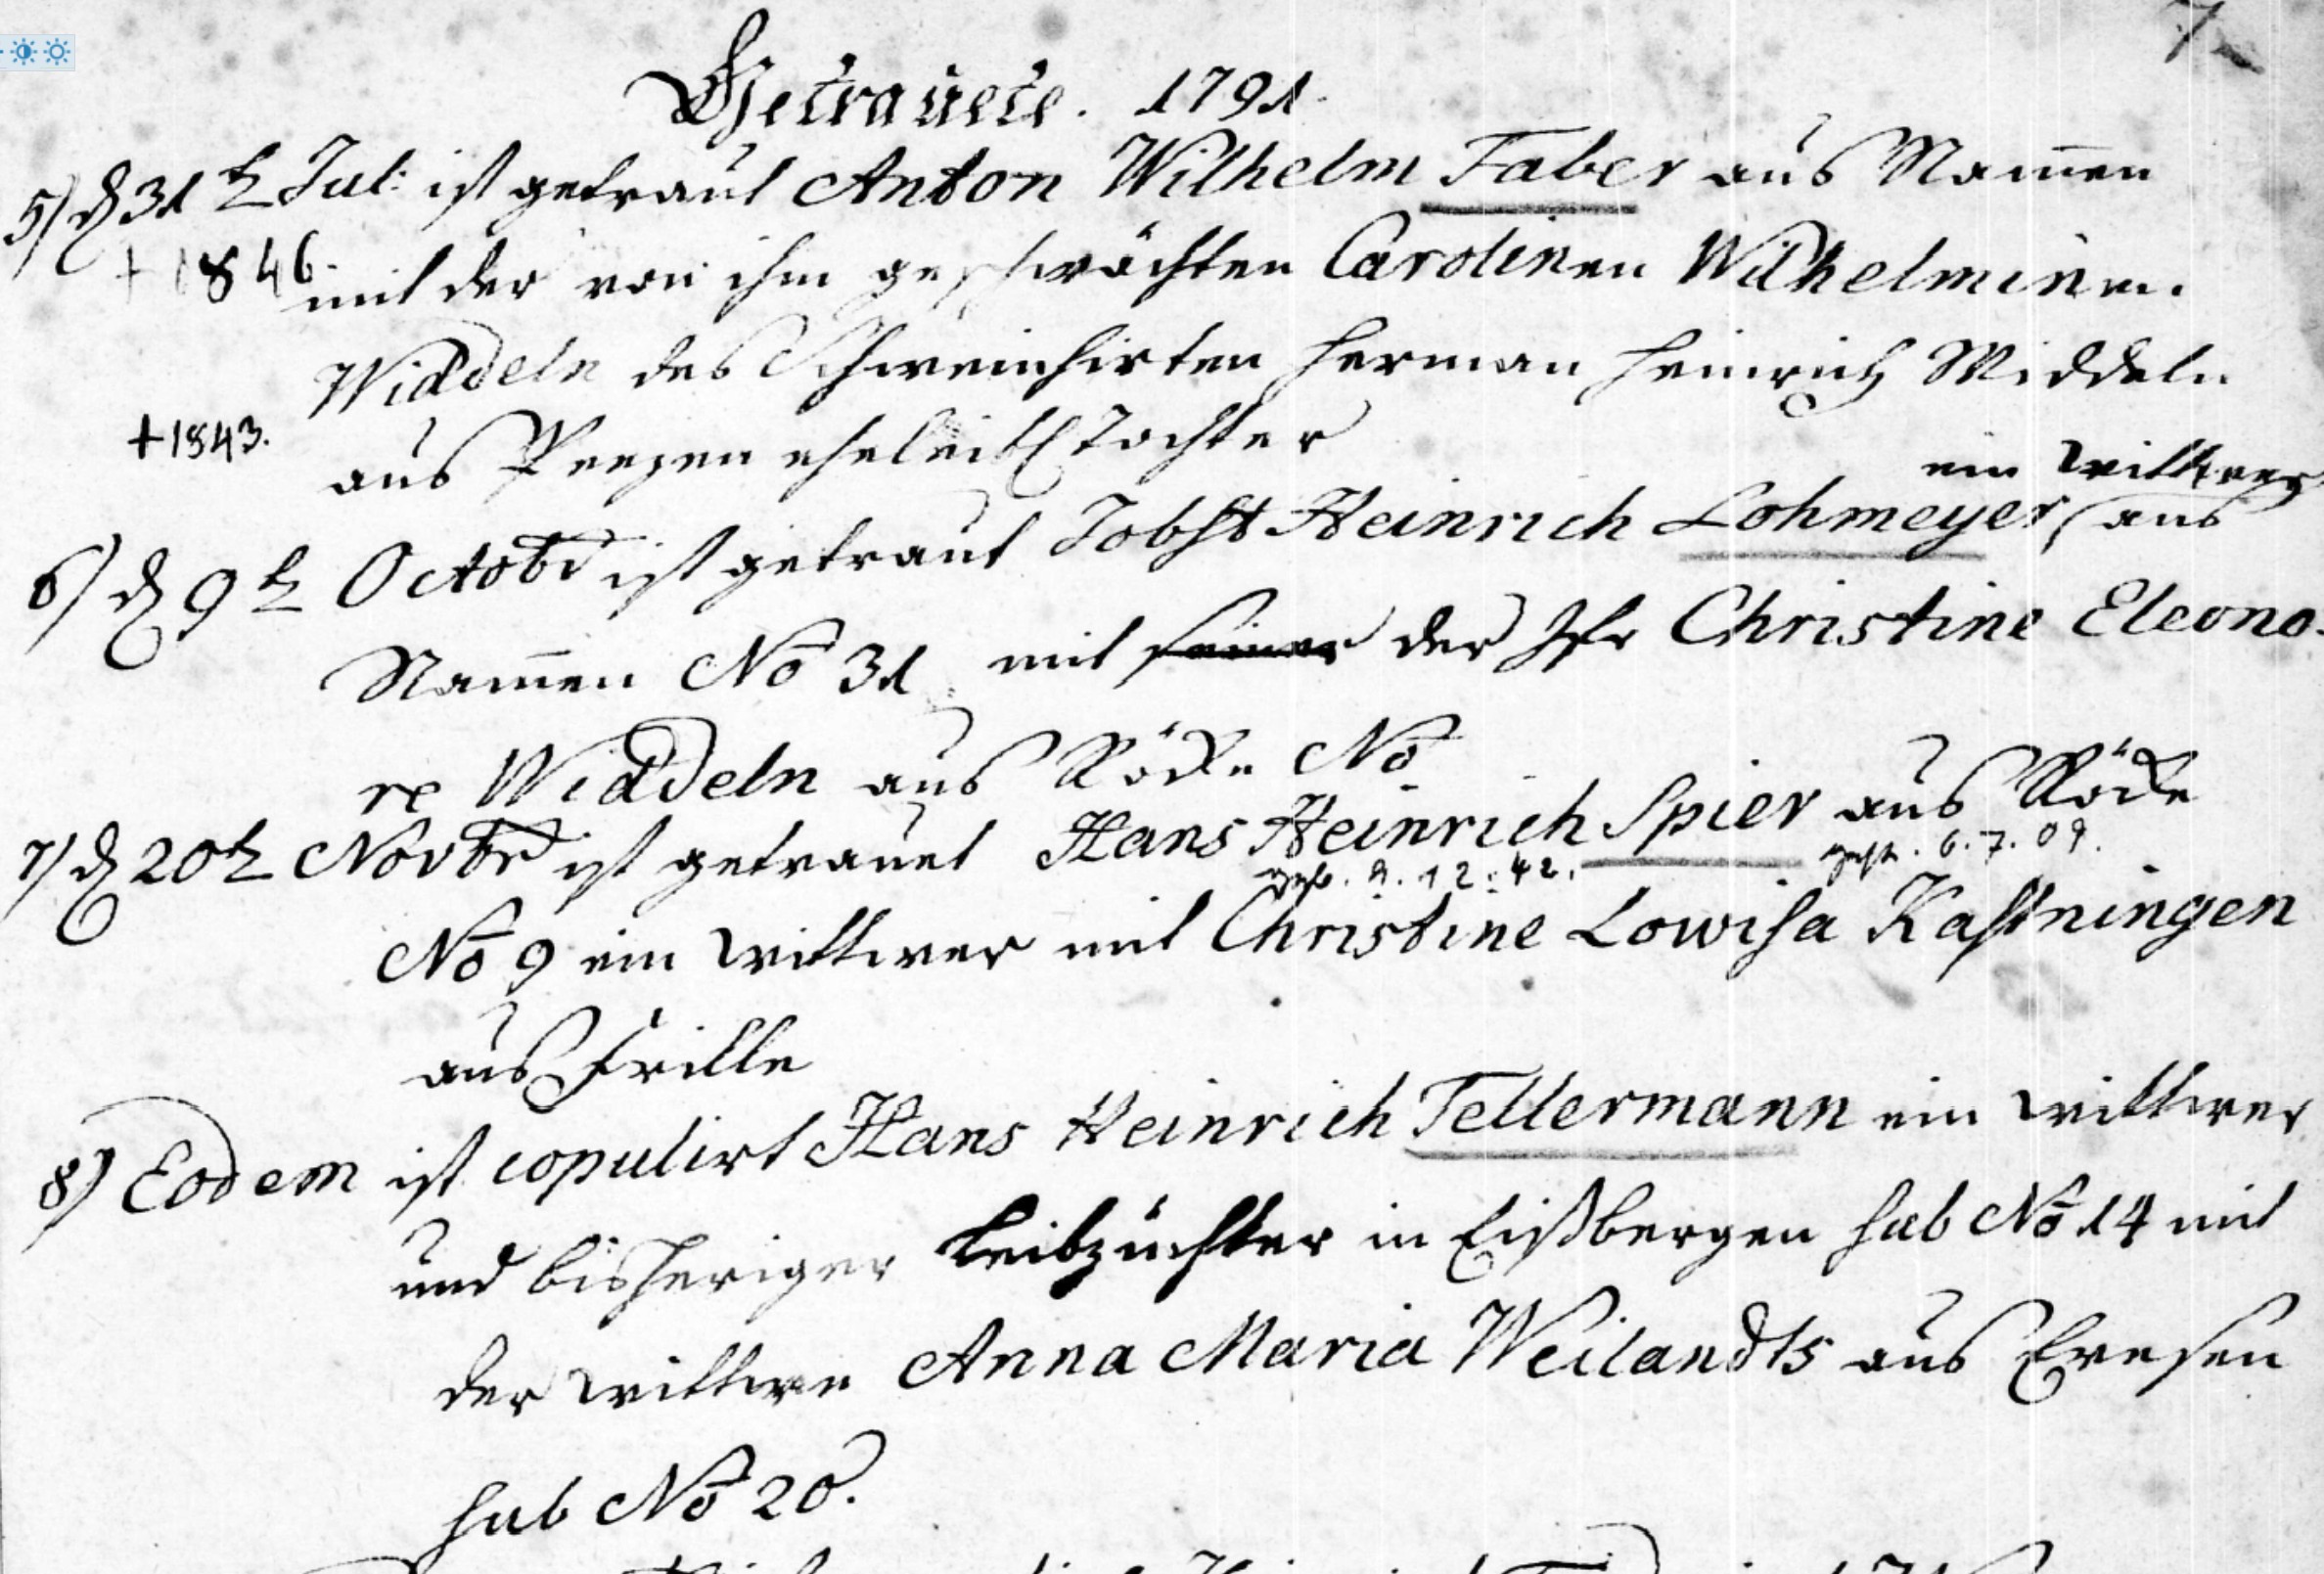 7
Getrauete. 1791.
5) d 31t Jul: ist getraut Anton Wilhelm Faber aus Nam̄en
+ 1846. mit der von ihm geschwächten Carolinen Wilhelminen.
Widdeln des Schweinhirten Herman Heinrich Widdeln
+1843. aus Peezen eheleibl Tochter
ein Wittwer
6) d 9t Octobr ist getraut Jobst Heinrich Lohmeyer, aus
Nam̄en No 31 mit seiner der Jfr Christine Eleono-
re Widdeln aus Röcke No
7) d 20t Novbr ist getrauet Hans Heinrich Spier aus Röcke
geb. 9.12.42. gest. 6.7.09.
No 9 ein Wittwer mit Christine Lowisa Kastningen
aus Frille
8) Eodem ist copulirt Hans Heinrich Tellermann ein Wittwer
und bisheriger Leibzüchter in Eißbergen sub No 14 mit
der Wittwe Anna Maria Weilandts aus Evesen
sub No 20.